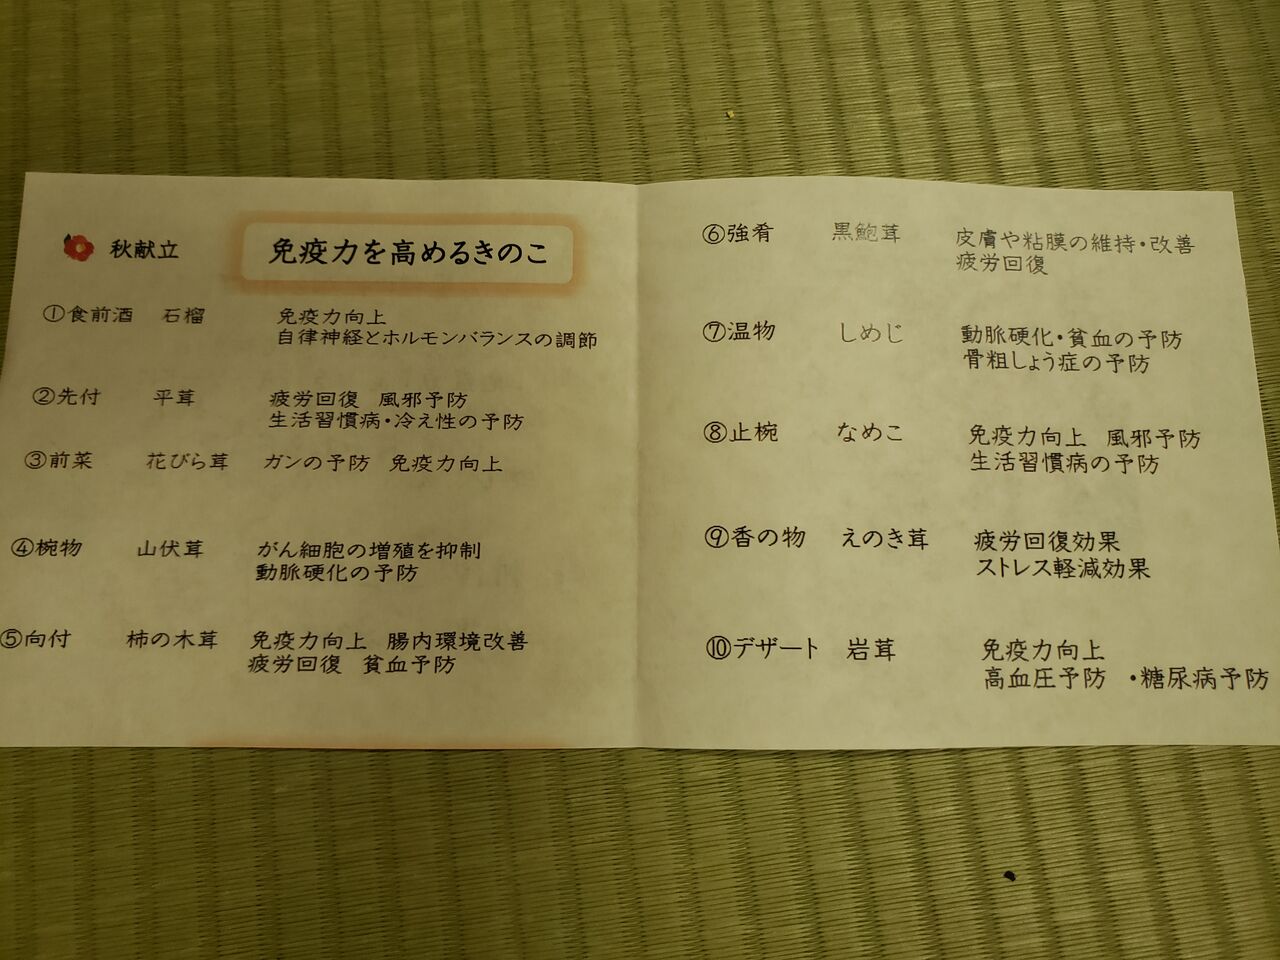 秋献立 免疫力を高めるきのこ
①食前酒 石榴 免疫力向上
自律神経とホルモンバランスの調節
②先付 平茸 疲労回復 風邪予防
生活習慣病・冷え性の予防
③前菜 花びら茸 ガンの予防 免疫力向上
④椀物 山伏茸 がん細胞の増殖を抑制
動脈硬化の予防
⑤向付 柿の木茸 免疫力向上 腸内環境改善
疲労回復 貧血予防
⑥強肴 黒鮑茸 皮膚や粘膜の維持・改善
疲労回復
⑦温物 しめじ 動脈硬化・貧血の予防
骨粗しょう症の予防
⑧止椀 なめこ 免疫力向上 風邪予防
生活習慣病の予防
⑨香の物 えのき茸 疲労回復効果
ストレス軽減効果
⑩デザート 岩茸 免疫力向上
高血圧予防 ・糖尿病予防